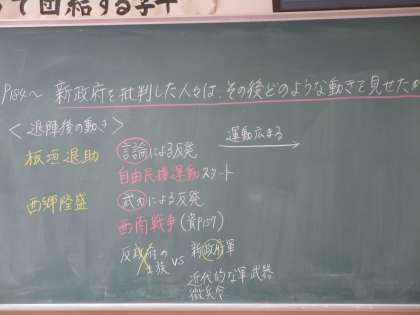 って団結する学
P154〜 新政府を批判した人々は、その後どのような動きを見せたか
＜退陣後の動き＞
板垣退助 言論による反発 運動広まる
自由民権運動スタート
西郷隆盛 武力による反発
西南戦争(資P157)
反政府の士族 vs 新政府軍
近代的な軍 武器
徴兵令